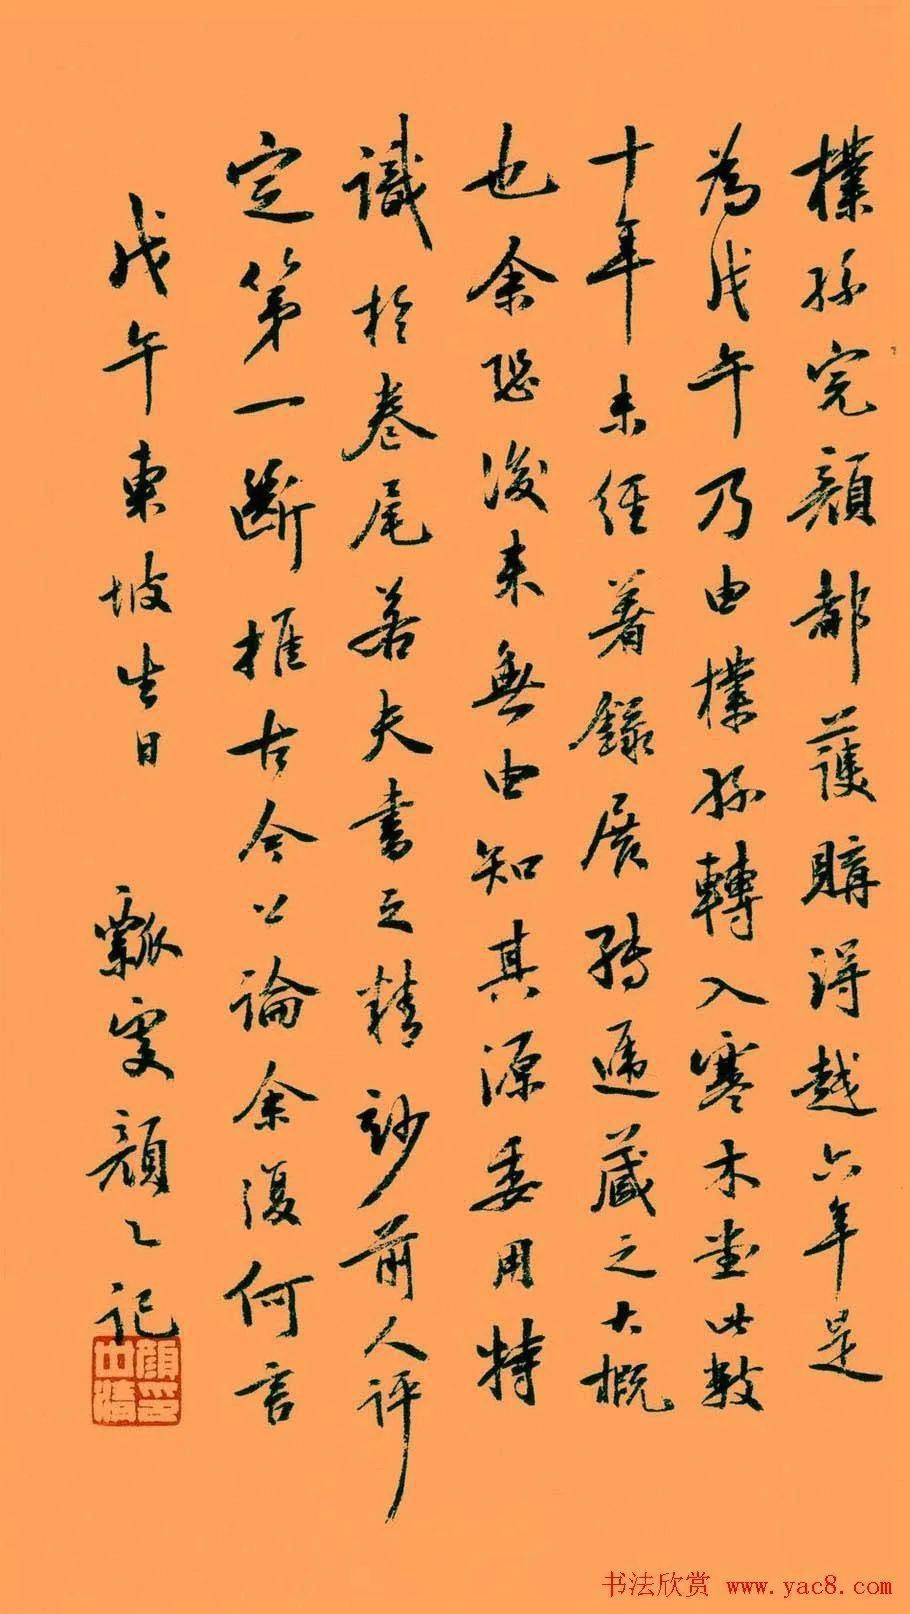 樸孫完顏都護購得越六年是
為戊午乃由樸孫轉入寒木堂此數
十年未經著錄展轉遞藏之大概
也余恐後來無由知其源委用特
識於卷尾若夫書之精玅前人評
定第一斷推古今公論余復何言
戊午東坡生日 瓢叟顏記
顏世清印
书法欣赏 www.yac8.com